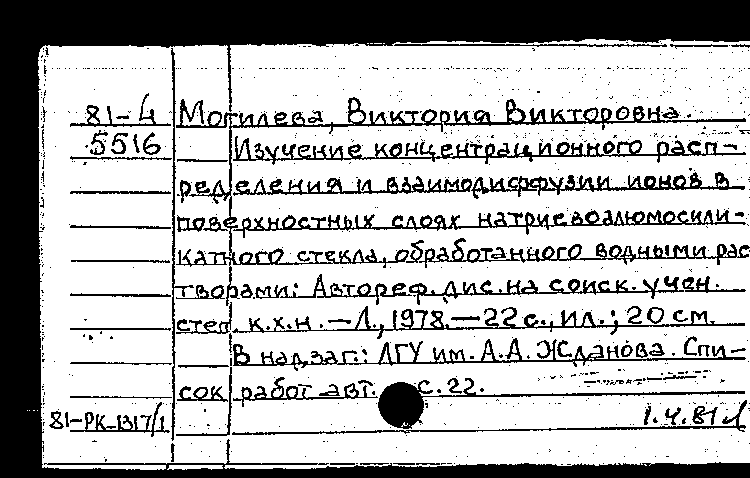 81-4 Могилева, Виктория Викторовна.
5516 Изучение концентрационного расп-
ределения и взаимодиффузии ионов в
поверхностных слоях натриевоалюмосили-
катного стекла, обработанного водными рас
творами: Автореф. дис. на соиск. учен.
степ. к.х.н. — Л., 1978. — 22 с., ил.; 20 см.
В надзаг.: ЛГУ им. А.А. Жданова. Спи-
сок работ авт. с. 22.
81-РК-1317/1 1.4.81